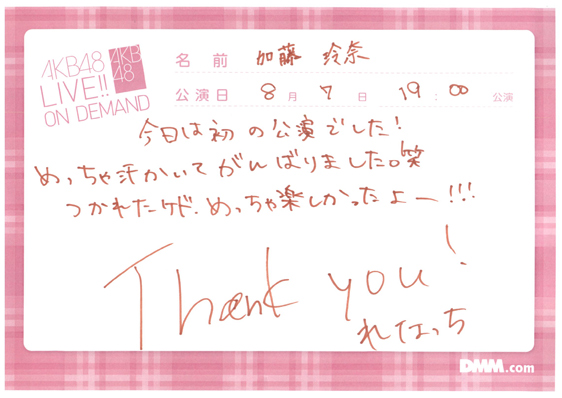 AKB48
LIVE!!
ON DEMAND
AKB
48
名 前 加藤 玲奈
公演日 8 月 7 日 19 : 00 公演
今日は初の公演でした!
めっちゃ汗かいてがんばりました。笑
つかれたケド、めっちゃ楽しかったよー!!!
Thank you!
れなっち
DMM.com